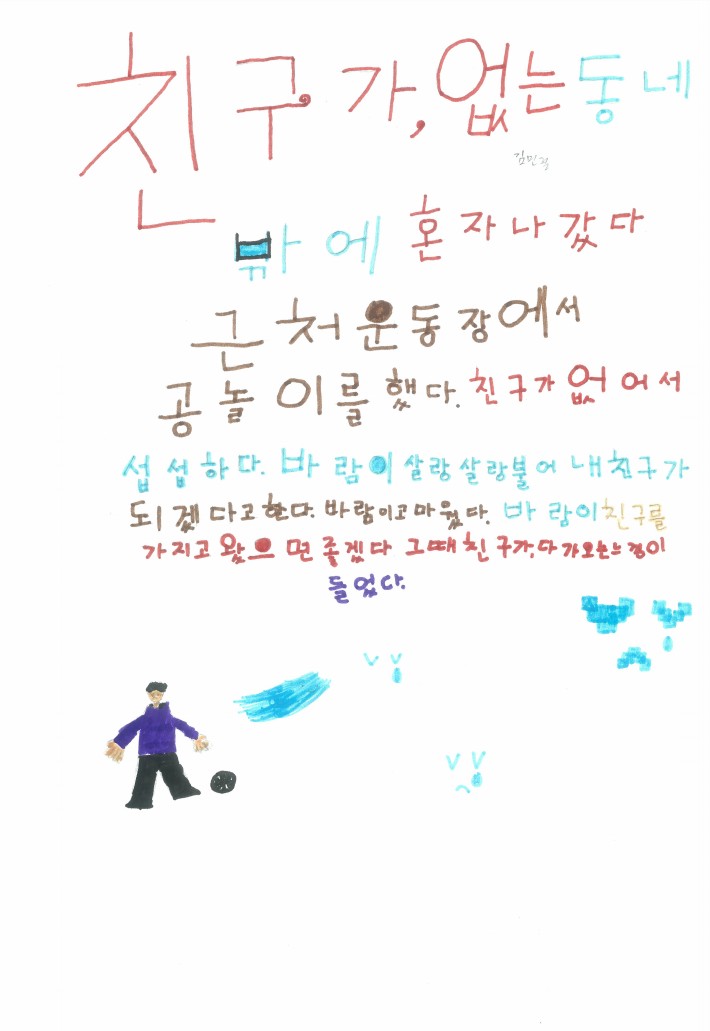 친구가, 없는동네
밖에 혼자나갔다
근처운동장에서
공놀이를했다. 친구가없어서
섭섭하다. 바람이살랑살랑불어 내친구가
되겠다고한다. 바람이고마웠다. 바람이친구를
가지고왔으면좋겠다 그때친구가,다가오는
들었다.